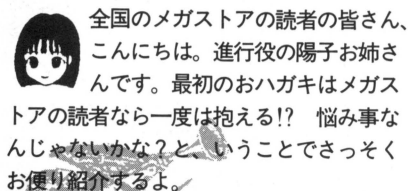 全国のメガストアの読者の皆さん、
こんにちは。進行役の陽子お姉さ
んです。最初のおハガキはメガス
トアの読者なら一度は抱える!?　悩み事な
んじゃないかな？と、いうことでさっそく
お便り紹介するよ。